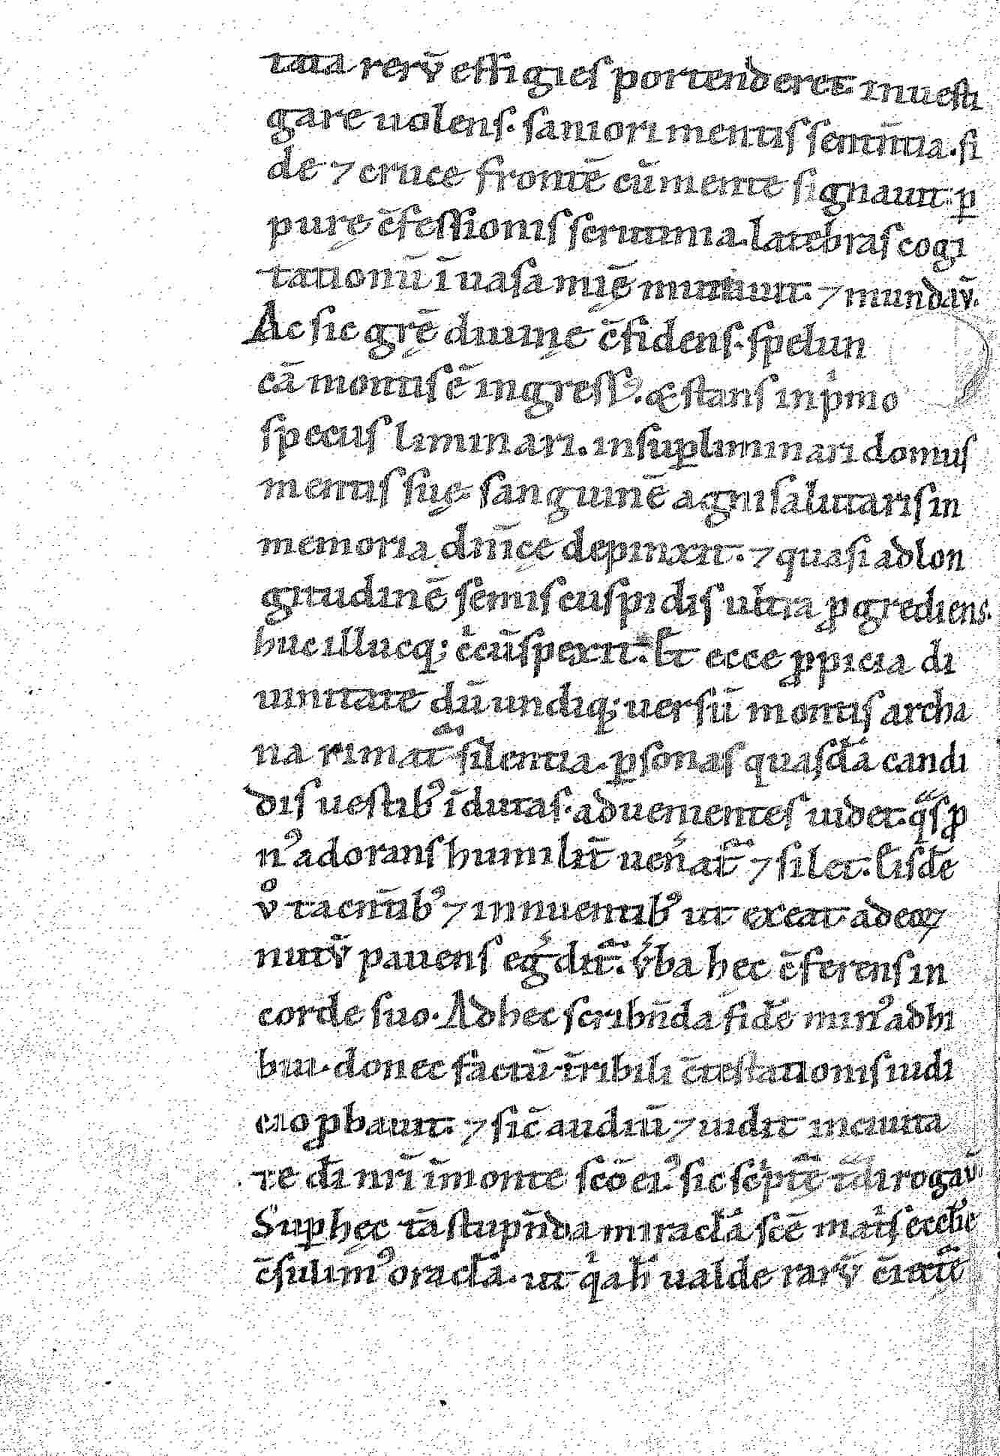 tata rerū effigies portenderet. inuesti
gare uolens. saniori mentis sentn̄tia. fi
de ⁊ cruce frontē cū mente signauit. ꝑ
purę c̄fessionis scrutinia. latebras cogi
tationū ī uasa mię̄ mutauit. ⁊ mundaū.
Ac sic grę̄ diuinę c̄fidens. spelun
cā montis ē ingressꝰ. & stans in pͥmo
specus liminari. in suꝑliminari domus
mentis suę sanguinē agni salutaris in
memoria dn̄icę depinxit. ⁊ quasi ad lon
gitudinē semis cuspidis ultͥa ꝓgrediens.
huc illucq; cͥcūspexit. Et ecce ꝓpicia di
uinitate dū undiq; uersū montis archa
na rimat᷑ silentia. ꝑsonas quasdā candi
dis uestibꝰ īdutas. aduenientes uidet. qͣs ꝓ
nꝰ adorans humilit̄ uen̄at᷑ ⁊ silet. Eisdē
ůͦ tacn̄tibꝰ ⁊ innuentibꝰ ut exeat ad eoꝝ
nutū pauens eḡdit᷑. ūba hec c̄ferens in
corde suo. Ad hec scribn̄da fidē minꝰ adhi
bui. donec factū t̄ribili c̄testationis iudi
cio ꝓbauit. ⁊ sic̄ audiū ⁊ uidit in ciuita
te dī nr̄i ī monte scō eiꝰ. sic scͥptē
Suꝑ hęc tā stupn̄da miraclā scē matͥs ecclīe
c̄suluimꝰ oraclā. ut qͥa h̄ ualde rarū